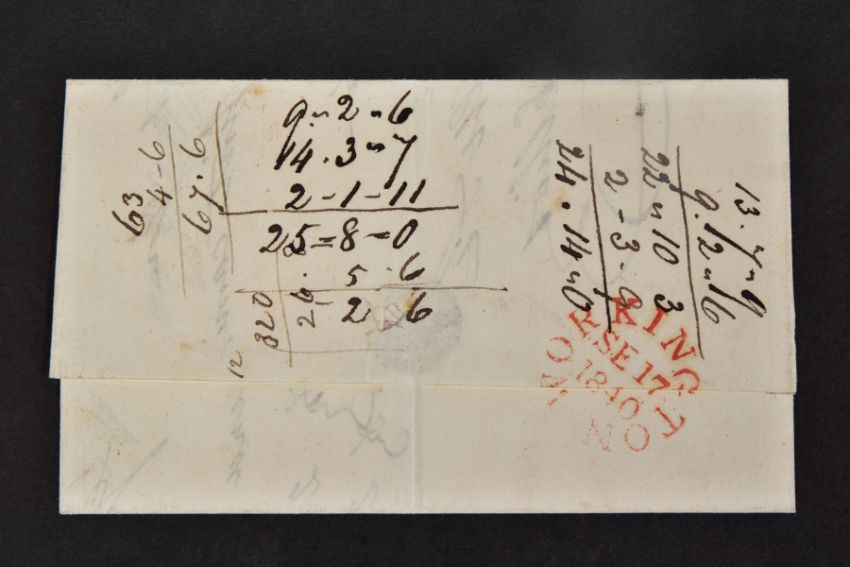 9 " 2 " 6
14 . 3 " 7
2 - 1 - 11
25 = 8 = 0
. 5 . 6
26 - 2 6
63
4 - 6
67 . 6
820
12
13 . 7 " 9
9 . 12 " 6
22 " 10 3
2 - 3 . 9
24 . 14 " 0
WORKINGTON
SE 17
1840